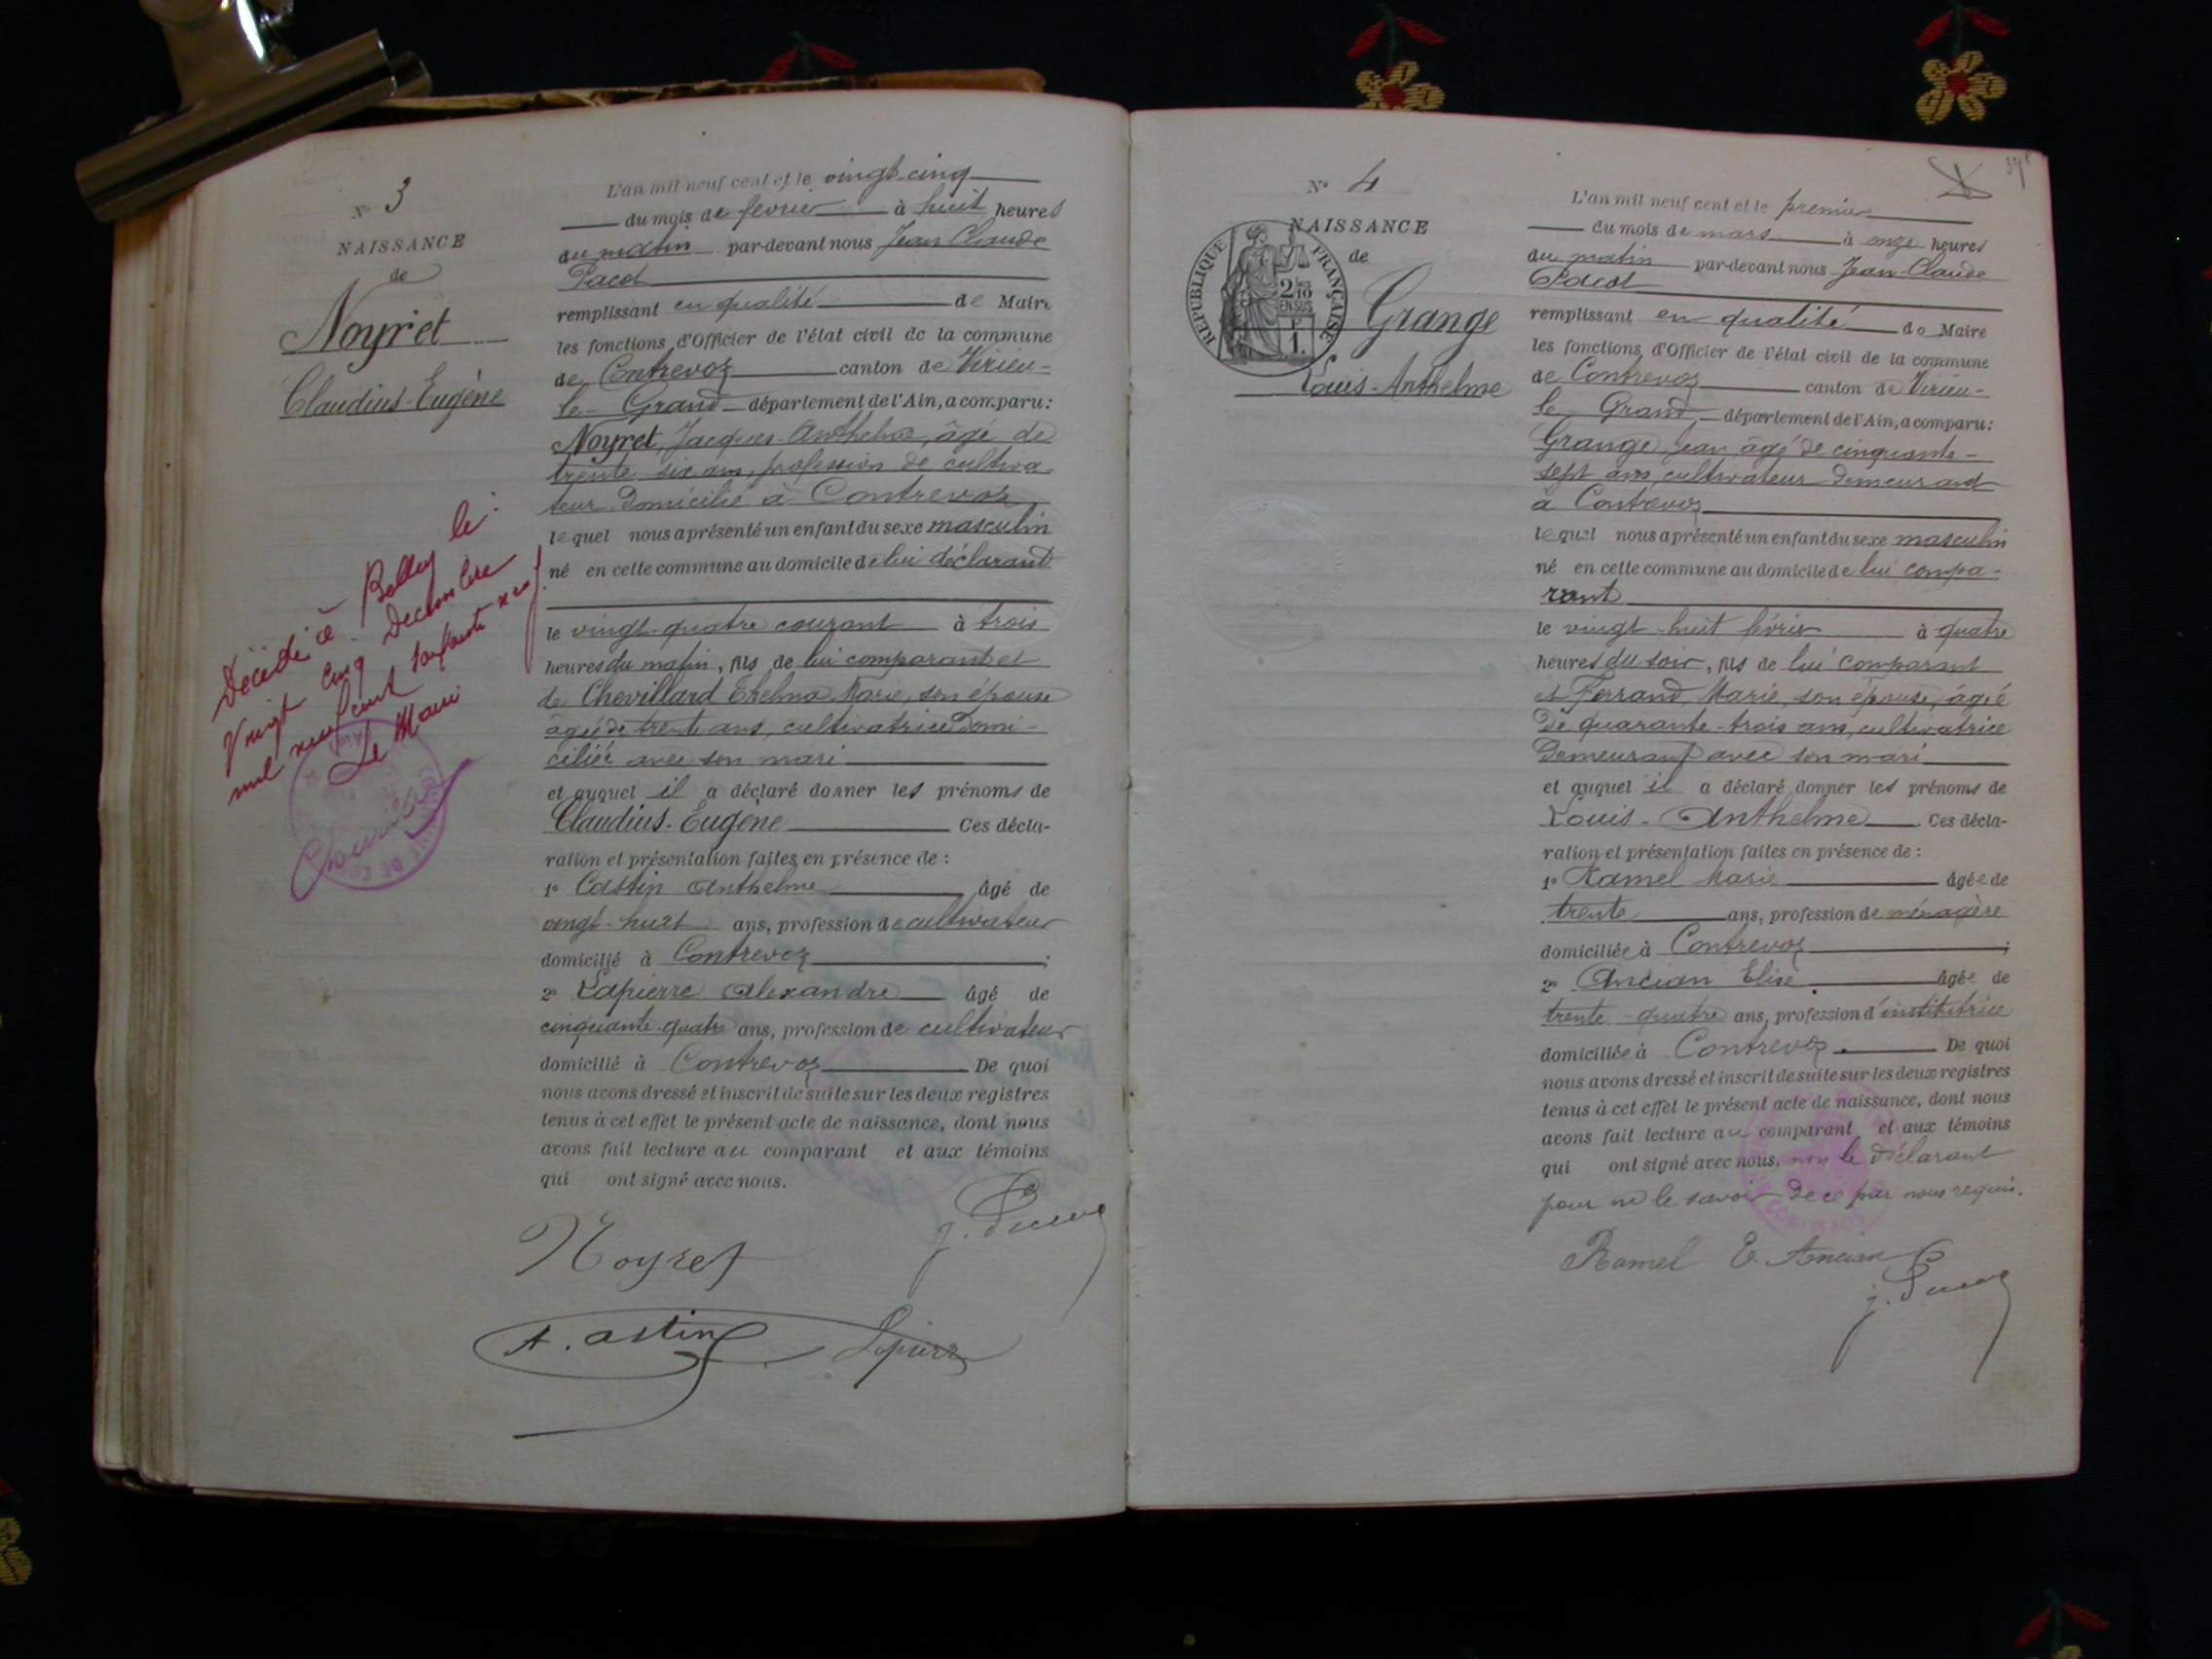 N° 3
NAISSANCE
de
Noyret
Claudius-Eugène
Décédé à Belley le
vingt cinq Décembre
mil neuf cent soixante
Le Maire
L'an mil neuf cent et le vingt-cinq
du mois de février à huit heures
du matin par-devant nous Jean Claude
Pacot
remplissant en qualité de Maire
les fonctions d'Officier de l'état civil de la commune
de Contrevoz canton de Virieu-
le-Grand département de l'Ain, a comparu:
Noyret, Jacques-Anthelme, âgé de
trente six ans, profession de cultiva-
teur domicilié à Contrevoz
lequel nous a présenté un enfant du sexe masculin
né en cette commune au domicile de lui déclarant
le vingt-quatre courant à trois
heures du matin, fils de lui comparant et
de Chevillard Thelma Marie, son épouse
âgée de trente ans, cultivatrice domi-
ciliée avec son mari
et auquel il a déclaré donner les prénoms de
Claudius-Eugène Ces décla-
ration et présentation faites en présence de :
1° Castin Anthelme âgé de
vingt-huit ans, profession de cultivateur
domicilié à Contrevoz ;
2° Lapierre Alexandre âgé de
cinquante-quatre ans, profession de cultivateur
domicilié à Contrevoz De quoi
nous avons dressé et inscrit de suite sur les deux registres
tenus à cet effet le présent acte de naissance, dont nous
avons fait lecture au comparant et aux témoins
qui ont signé avec nous.
Noyret
A. astin Lapierre
N° 4
NAISSANCE
de
REPUBLIQUE FRANÇAISE
2 10
EN SUS
F
1.
Grange
Louis-Anthelme
L'an mil neuf cent et le premier
du mois de mars à onze heures
du matin par-devant nous Jean-Claude
Pacot
remplissant en qualité de Maire
les fonctions d'Officier de l'état civil de la commune
de Contrevoz canton de Virieu-
le-Grand, département de l'Ain, a comparu:
Grange Jean âgé de cinquante-
sept ans cultivateur demeurant
à Contrevoz
lequel nous a présenté un enfant du sexe masculin
né en cette commune au domicile de lui compa-
rant
le vingt-huit février à quatre
heures du soir, fils de lui comparant
et Ferrand, Marie, son épouse, âgée
de quarante-trois ans, cultivatrice
demeurant avec son mari
et auquel il a déclaré donner les prénoms de
Louis-Anthelme Ces décla-
ration et présentation faites en présence de :
1° Ramel Marie âgée de
trente ans, profession de ménagère
domiciliée à Contrevoz ;
2° Ancian Elise âgée de
trente-quatre ans, profession d'instititrice
domiciliée à Contrevoz. De quoi
nous avons dressé et inscrit de suite sur les deux registres
tenus à cet effet le présent acte de naissance, dont nous
avons fait lecture au comparant et aux témoins
qui ont signé avec nous, non le déclarant
pour ne le savoir de ce par nous requis.
Ramel E. Ancian